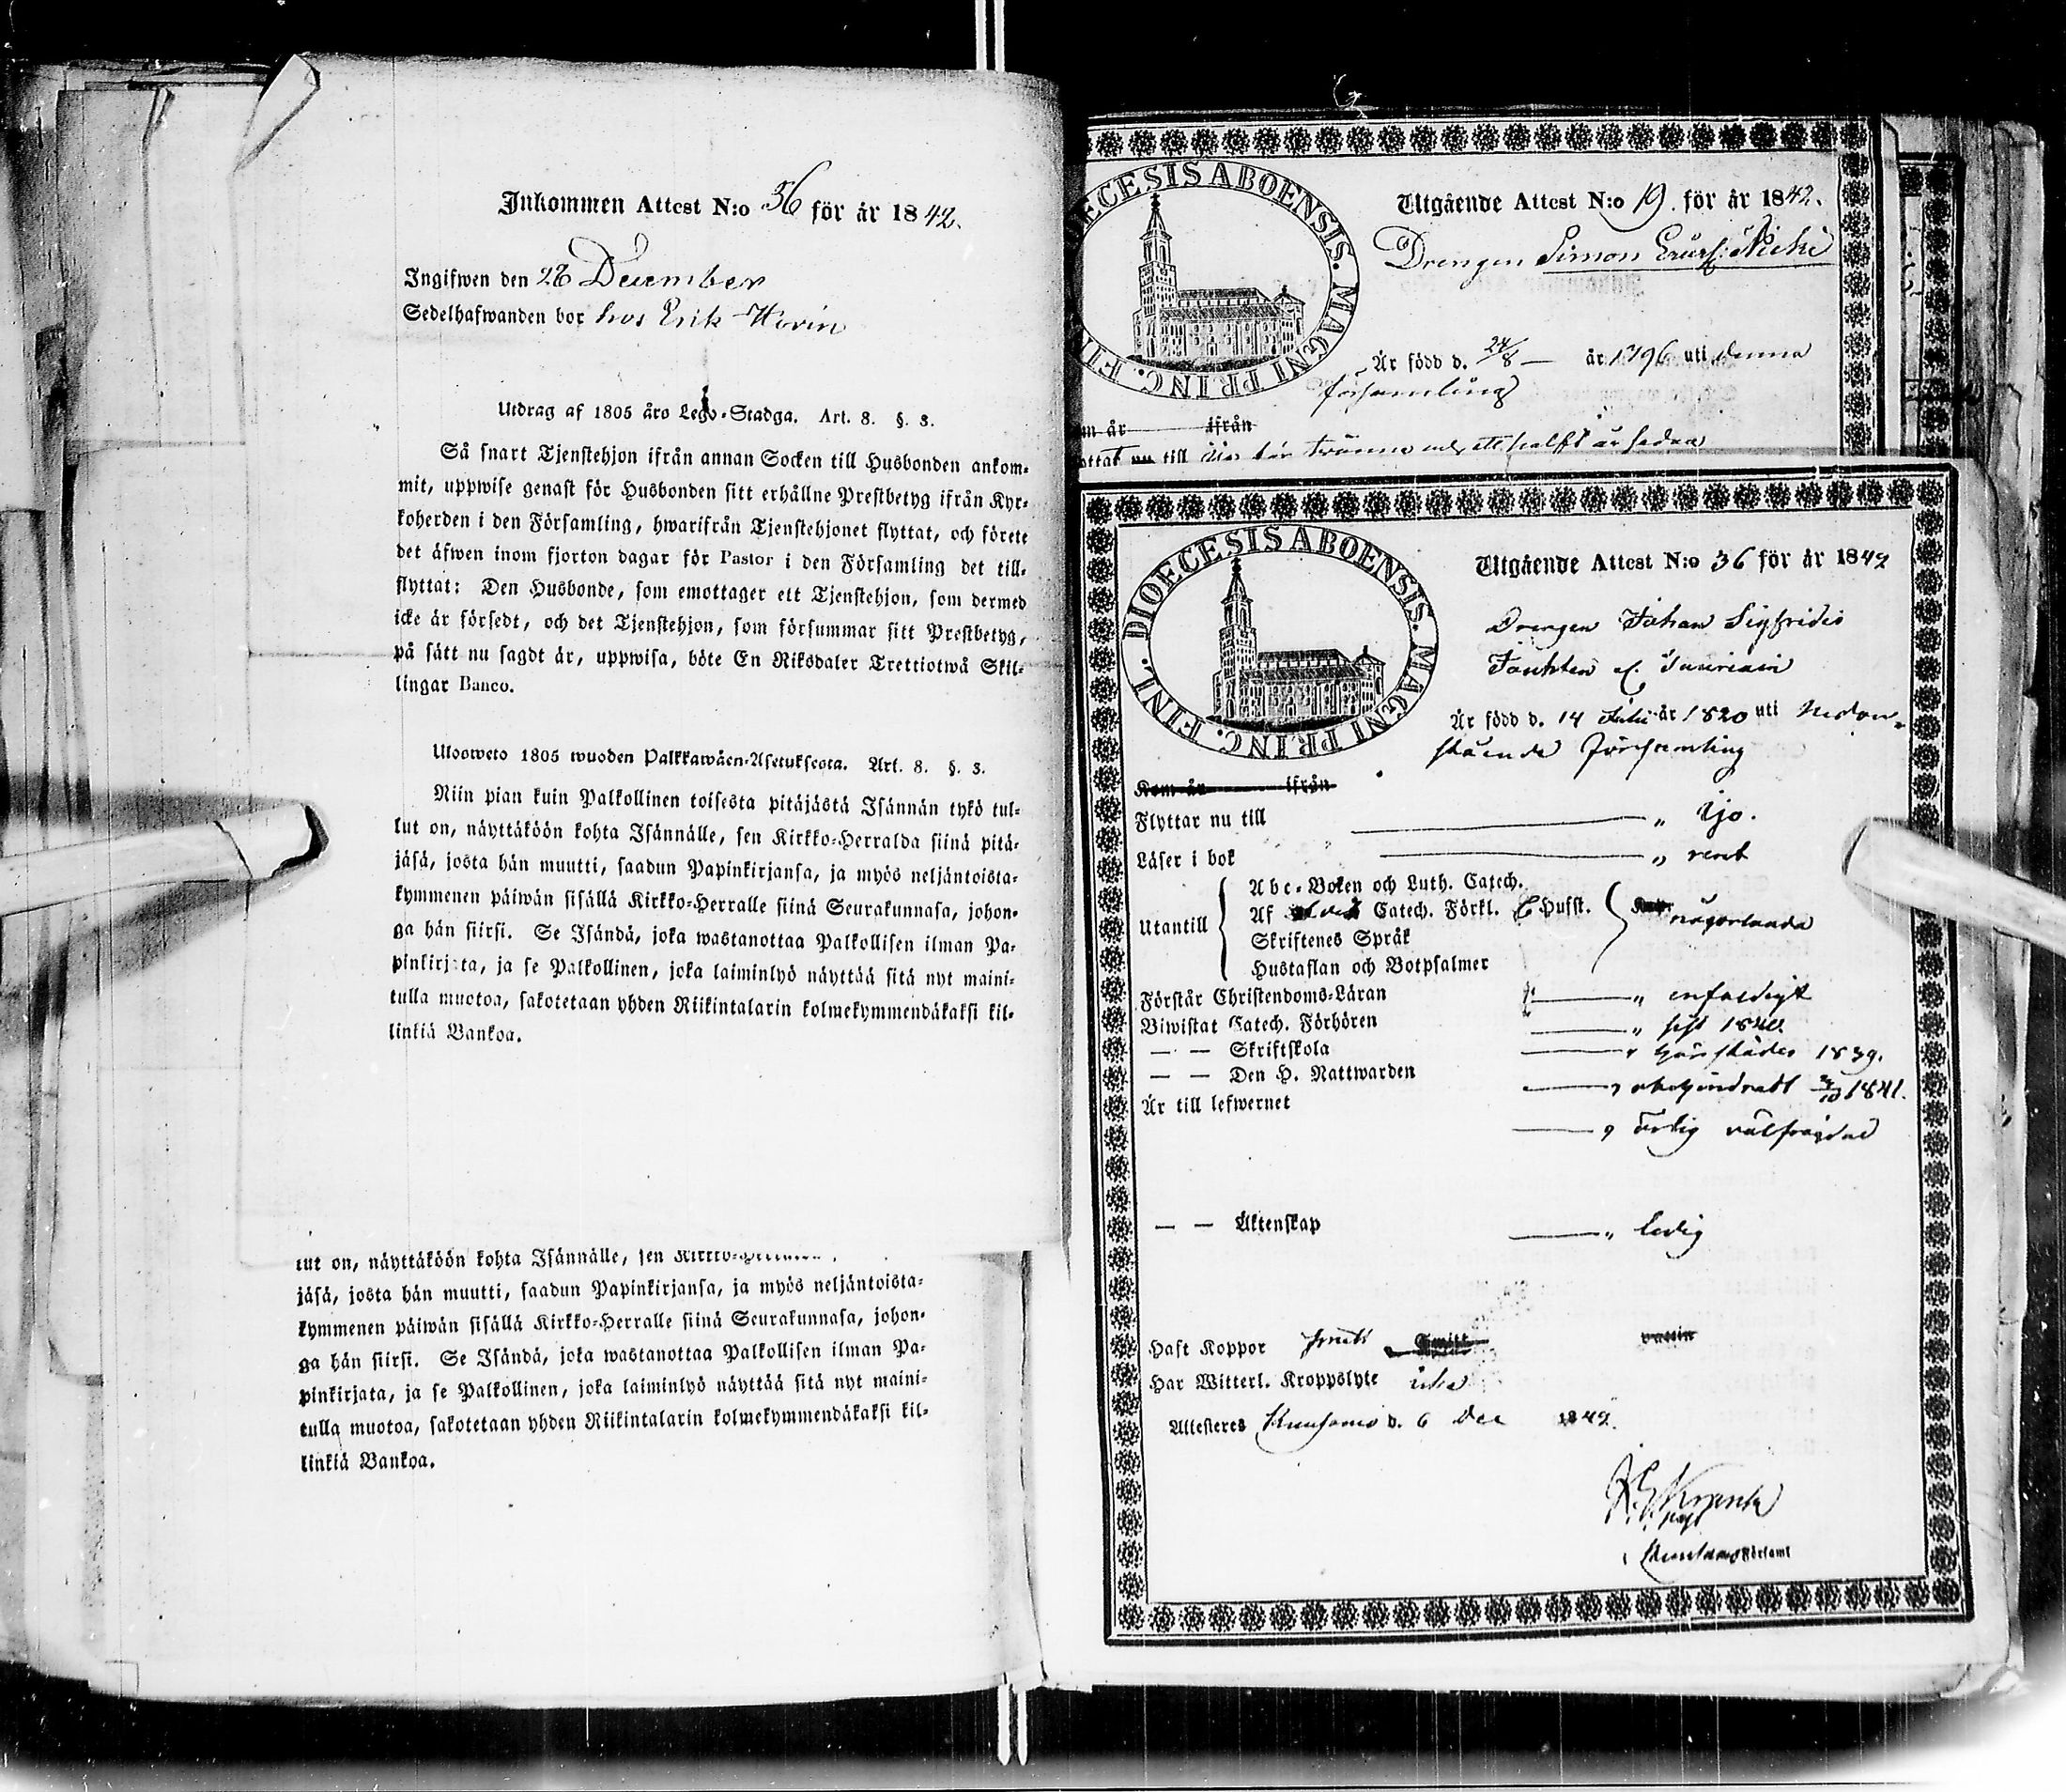 Inkommen Attest N:o 56 för år 1842.
Ingifwen den 28 December
Sedelhafwanden bor hos Erik Hovin
Utdrag af 1805 års Lego-Stadga. Art. 8. §. 3.
Så snart Tjenstehjon ifrån annan Socken till Husbonden ankom-
mit, uppwise genast för Husbonden sitt erhållne Prestbetyg ifrån Kyr-
koherden i den Församling, hwarifrån Tjenstehjonet flyttat, och förete
det äfwen inom fjorton dagar för Pastor i den Församling det till-
flyttat: Den Husbonde, som emottager ett Tjenstehjon, som dermed
icke är försedt, och det Tjenstehjon, som försummar sitt Prestbetyg,
på sätt nu sagdt är, uppwisa, böte En Riksdaler Trettiotwå Skil-
lingar Banco.
Ulosweto 1805 wuoden Palkkawäen-Asetuksesta. Art. 8. §. 3.
Niin pian kuin Palkollinen toisesta pitäjästä Isännän tykö tul-
lut on, näyttäköön kohta Isännälle, sen Kirkko-Herralda siinä pitä-
jäsä, josta hän muutti, saadun Papinkirjansa, ja myös neljäntoista-
kymmenen päiwän sisällä Kirkko-Herralle siinä Seurakunnasa, johon-
ga hän siirsi. Se Isändä, joka wastanottaa Palkollisen ilman Pa-
pinkirjata, ja se Palkollinen, joka laiminlyö näyttää sitä nyt maini-
tulla muotoa, sakotetaan yhden Riikintalarin kolmekymmendäkaksi kil-
linkiä Bankoa.
lut on, näyttäköön kohta Isännälle, sen
jäsä, josta hän muutti, saadun Papinkirjansa, ja myös neljäntoista-
kymmenen päiwän sisällä Kirkko-Herralle siinä Seurakunnasa, johon-
ga hän siirsi. Se Isändä, joka wastanottaa Palkollisen ilman Pa-
pinkirjata, ja se Palkollinen, joka laiminlyö näyttää sitä nyt maini-
tulla muotoa, sakotetaan yhden Riikintalarin kolmekymmendäkaksi kil-
linkiä Bankoa.
DIOECESIS ABOENSIS. MAGNI PRINC. FINL.
Utgående Attest N:o 19. för år 1842.
Drengen Simon
Är född d. 24/8 — år 1796 uti denna
församling
ifrån
till
DIOECESIS ABOENSIS. MAGNI PRINC. FINL.
Utgående Attest N:o 36 för år 1842
Drengen Johan Sigfridss
Är född d. 14 Julii år 1820 uti nedan-
stående församling
Kom år ifrån
Flyttar nu till „ Ijo.
Läser i bok „ rent
Utantill
Abc-Boken och Luth. Catech.
Af Catech. Förkl. Husst. någorlunda
Skriftenes Språk
Hustaflan och Botpsalmer
Förstår Christendoms-Läran „ enfaldigt
Biwistat Catech. Förhören „ sist 1842
— — Skriftskola härstädes 1839.
— — Den H. Nattwarden obehindradt 1841.
Är till lefwernet ärlig välfrägdad
— — Äktenskap „ ledig
Haft Koppor
Har Witterl. Kroppslyte icke
Attesteres Kuusamo d. 6 Dec 1842.
Kuusamo Församl